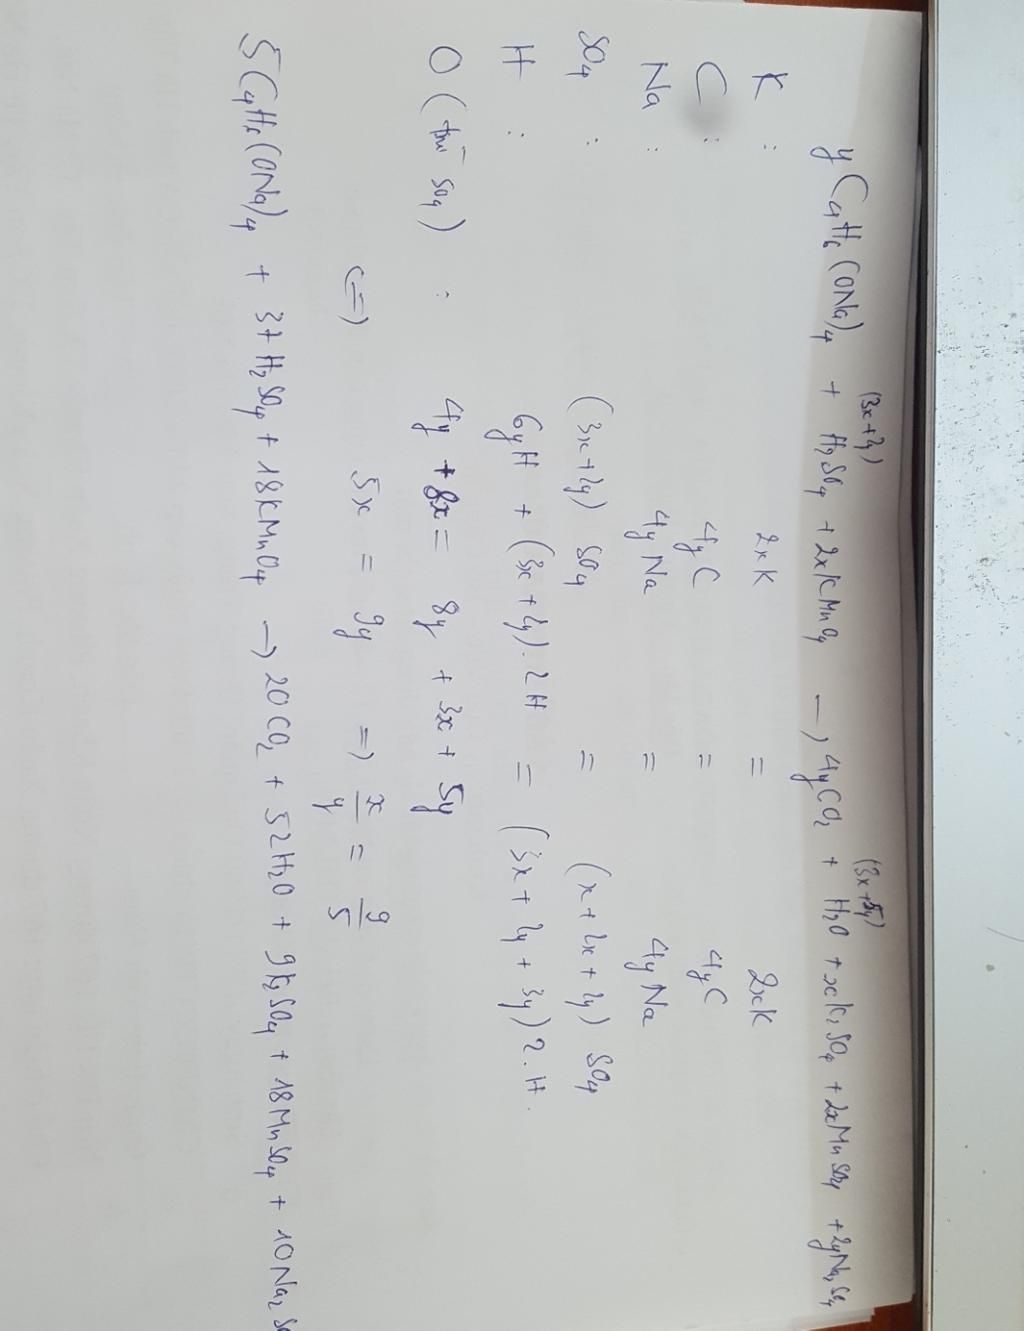 (3x+2y) (3x+5y)
yC4H6(ONa)4 + H2SO4 + 2xKMnO4 → 4yCO2 + H2O + xK2SO4 + 2xMnSO4 + 2yNa2SO4
K : 2xK = 2xK
C : 4yC = 4yC
Na : 4yNa = 4yNa
SO4 : (3x+2y) SO4 = (x+2x+2y) SO4
H : 6yH + (3x+2y).2H = (3x+2y+3y)2.H.
O (trừ SO4) : 4y + 8x = 8y + 3x + 5y
(=) 5x = 9y => x/y = 9/5
5C4H6(ONa)4 + 37H2SO4 + 18KMnO4 → 20CO2 + 52H2O + 9K2SO4 + 18MnSO4 + 10Na2SO